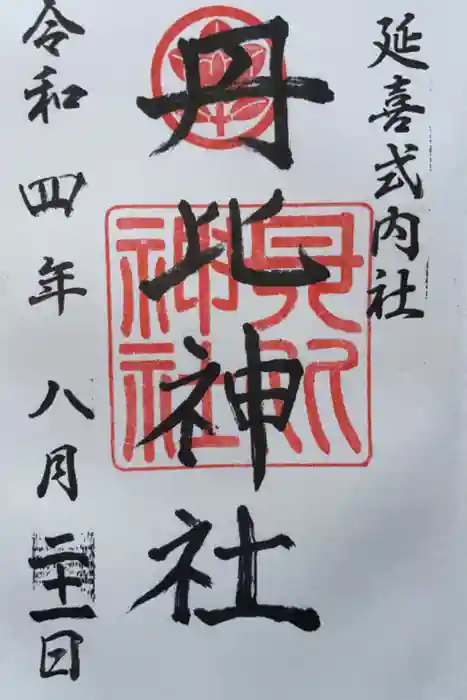 延喜式内社
丹比神社
神社
令和四年八月二十一日